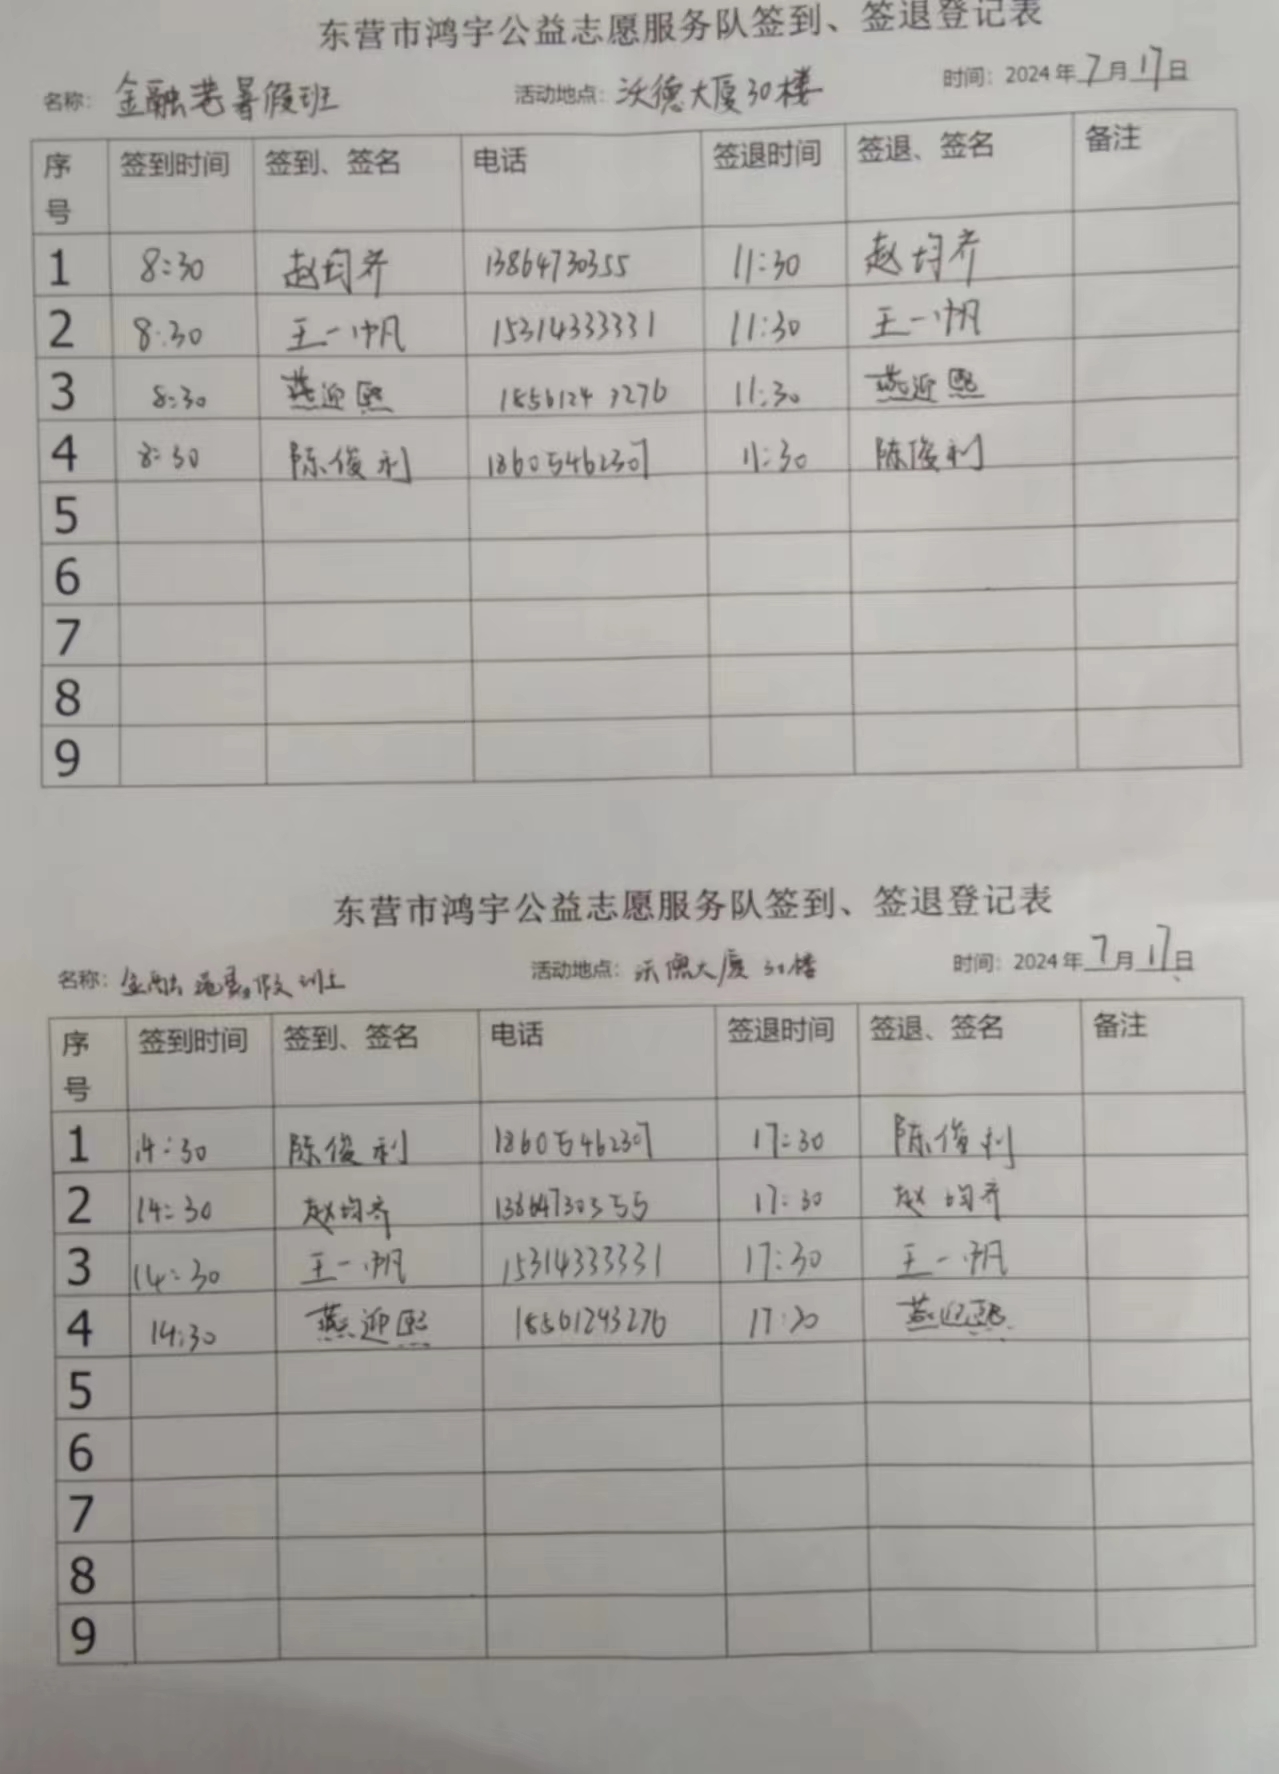 东营市鸿宇公益志愿服务队签到、签退登记表
名称: 金融港暑假班 活动地点: 沃德大厦30楼 时间: 2024年7月17日
序号 签到时间 签到、签名 电话 签退时间 签退、签名 备注
1 8:30 赵均齐 13864730355 11:30 赵均齐
2 8:30 王一帆 15314333331 11:30 王一帆
3 8:30 燕迎熙 18561243276 11:30 燕迎熙
4 8:30 陈俊利 18605462307 11:30 陈俊利
5
6
7
8
9
东营市鸿宇公益志愿服务队签到、签退登记表
名称: 金融港 活动地点: 沃德大厦30楼 时间: 2024年7月17日
序号 签到时间 签到、签名 电话 签退时间 签退、签名 备注
1 14:30 陈俊利 18605462307 17:30 陈俊利
2 14:30 赵均齐 13864730355 17:30 赵均齐
3 14:30 王一帆 15314333331 17:30 王一帆
4 14:30 燕迎熙 18561243276 17:30 燕迎熙
5
6
7
8
9